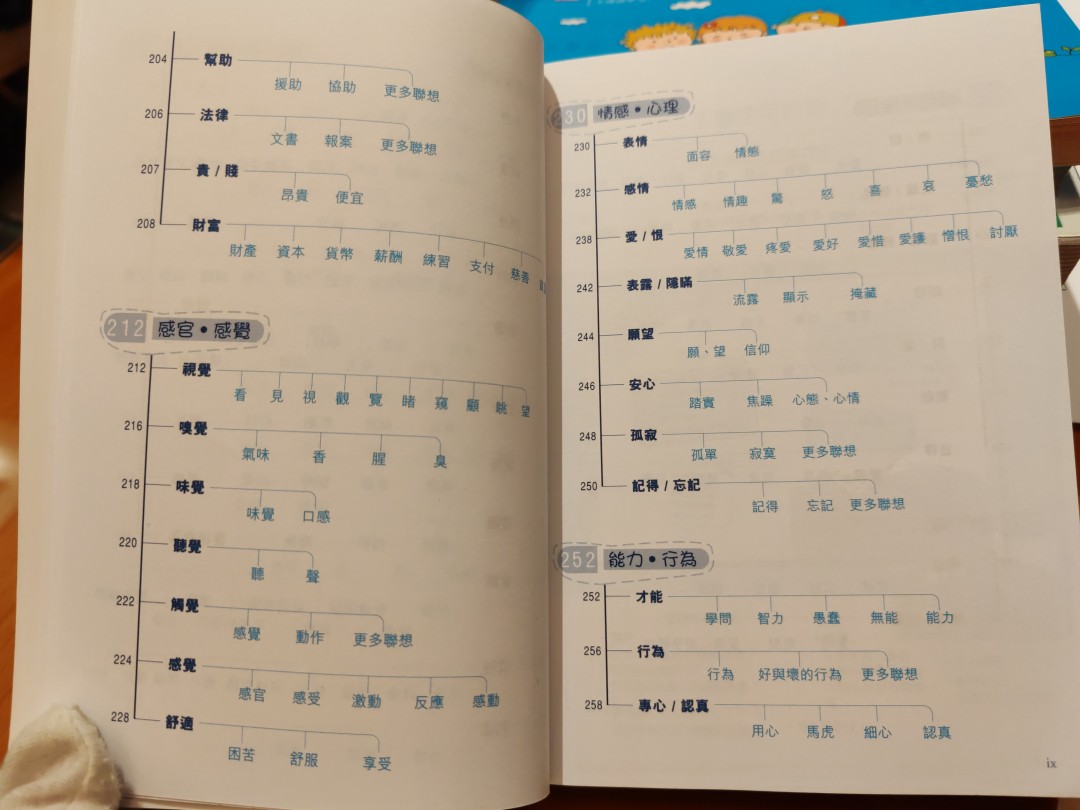 204 幫助
援助 協助 更多聯想
206 法律
文書 報案 更多聯想
207 貴 / 賤
昂貴 便宜
208 財富
財產 資本 貨幣 薪酬 練習 支付 慈善
212 感官•感覺
212 視覺
看 見 視 觀 覽 睹 窺 顧 眺 望
216 嗅覺
氣味 香 腥 臭
218 味覺
味覺 口感
220 聽覺
聽 聲
222 觸覺
感覺 動作 更多聯想
224 感覺
感官 感受 激動 反應 感動
228 舒適
困苦 舒服 享受
230 情感•心理
230 表情
面容 情態
232 感情
情感 情趣 驚 怒 喜 哀 憂愁
238 愛 / 恨
愛情 敬愛 疼愛 愛好 愛惜 愛護 憎恨 討厭
242 表露 / 隱瞞
流露 顯示 掩藏
244 願望
願、望 信仰
246 安心
踏實 焦躁 心態、心情
248 孤寂
孤單 寂寞 更多聯想
250 記得 / 忘記
記得 忘記 更多聯想
252 能力•行為
252 才能
學問 智力 愚蠢 無能 能力
256 行為
行為 好與壞的行為 更多聯想
258 專心 / 認真
用心 馬虎 細心 認真
ix